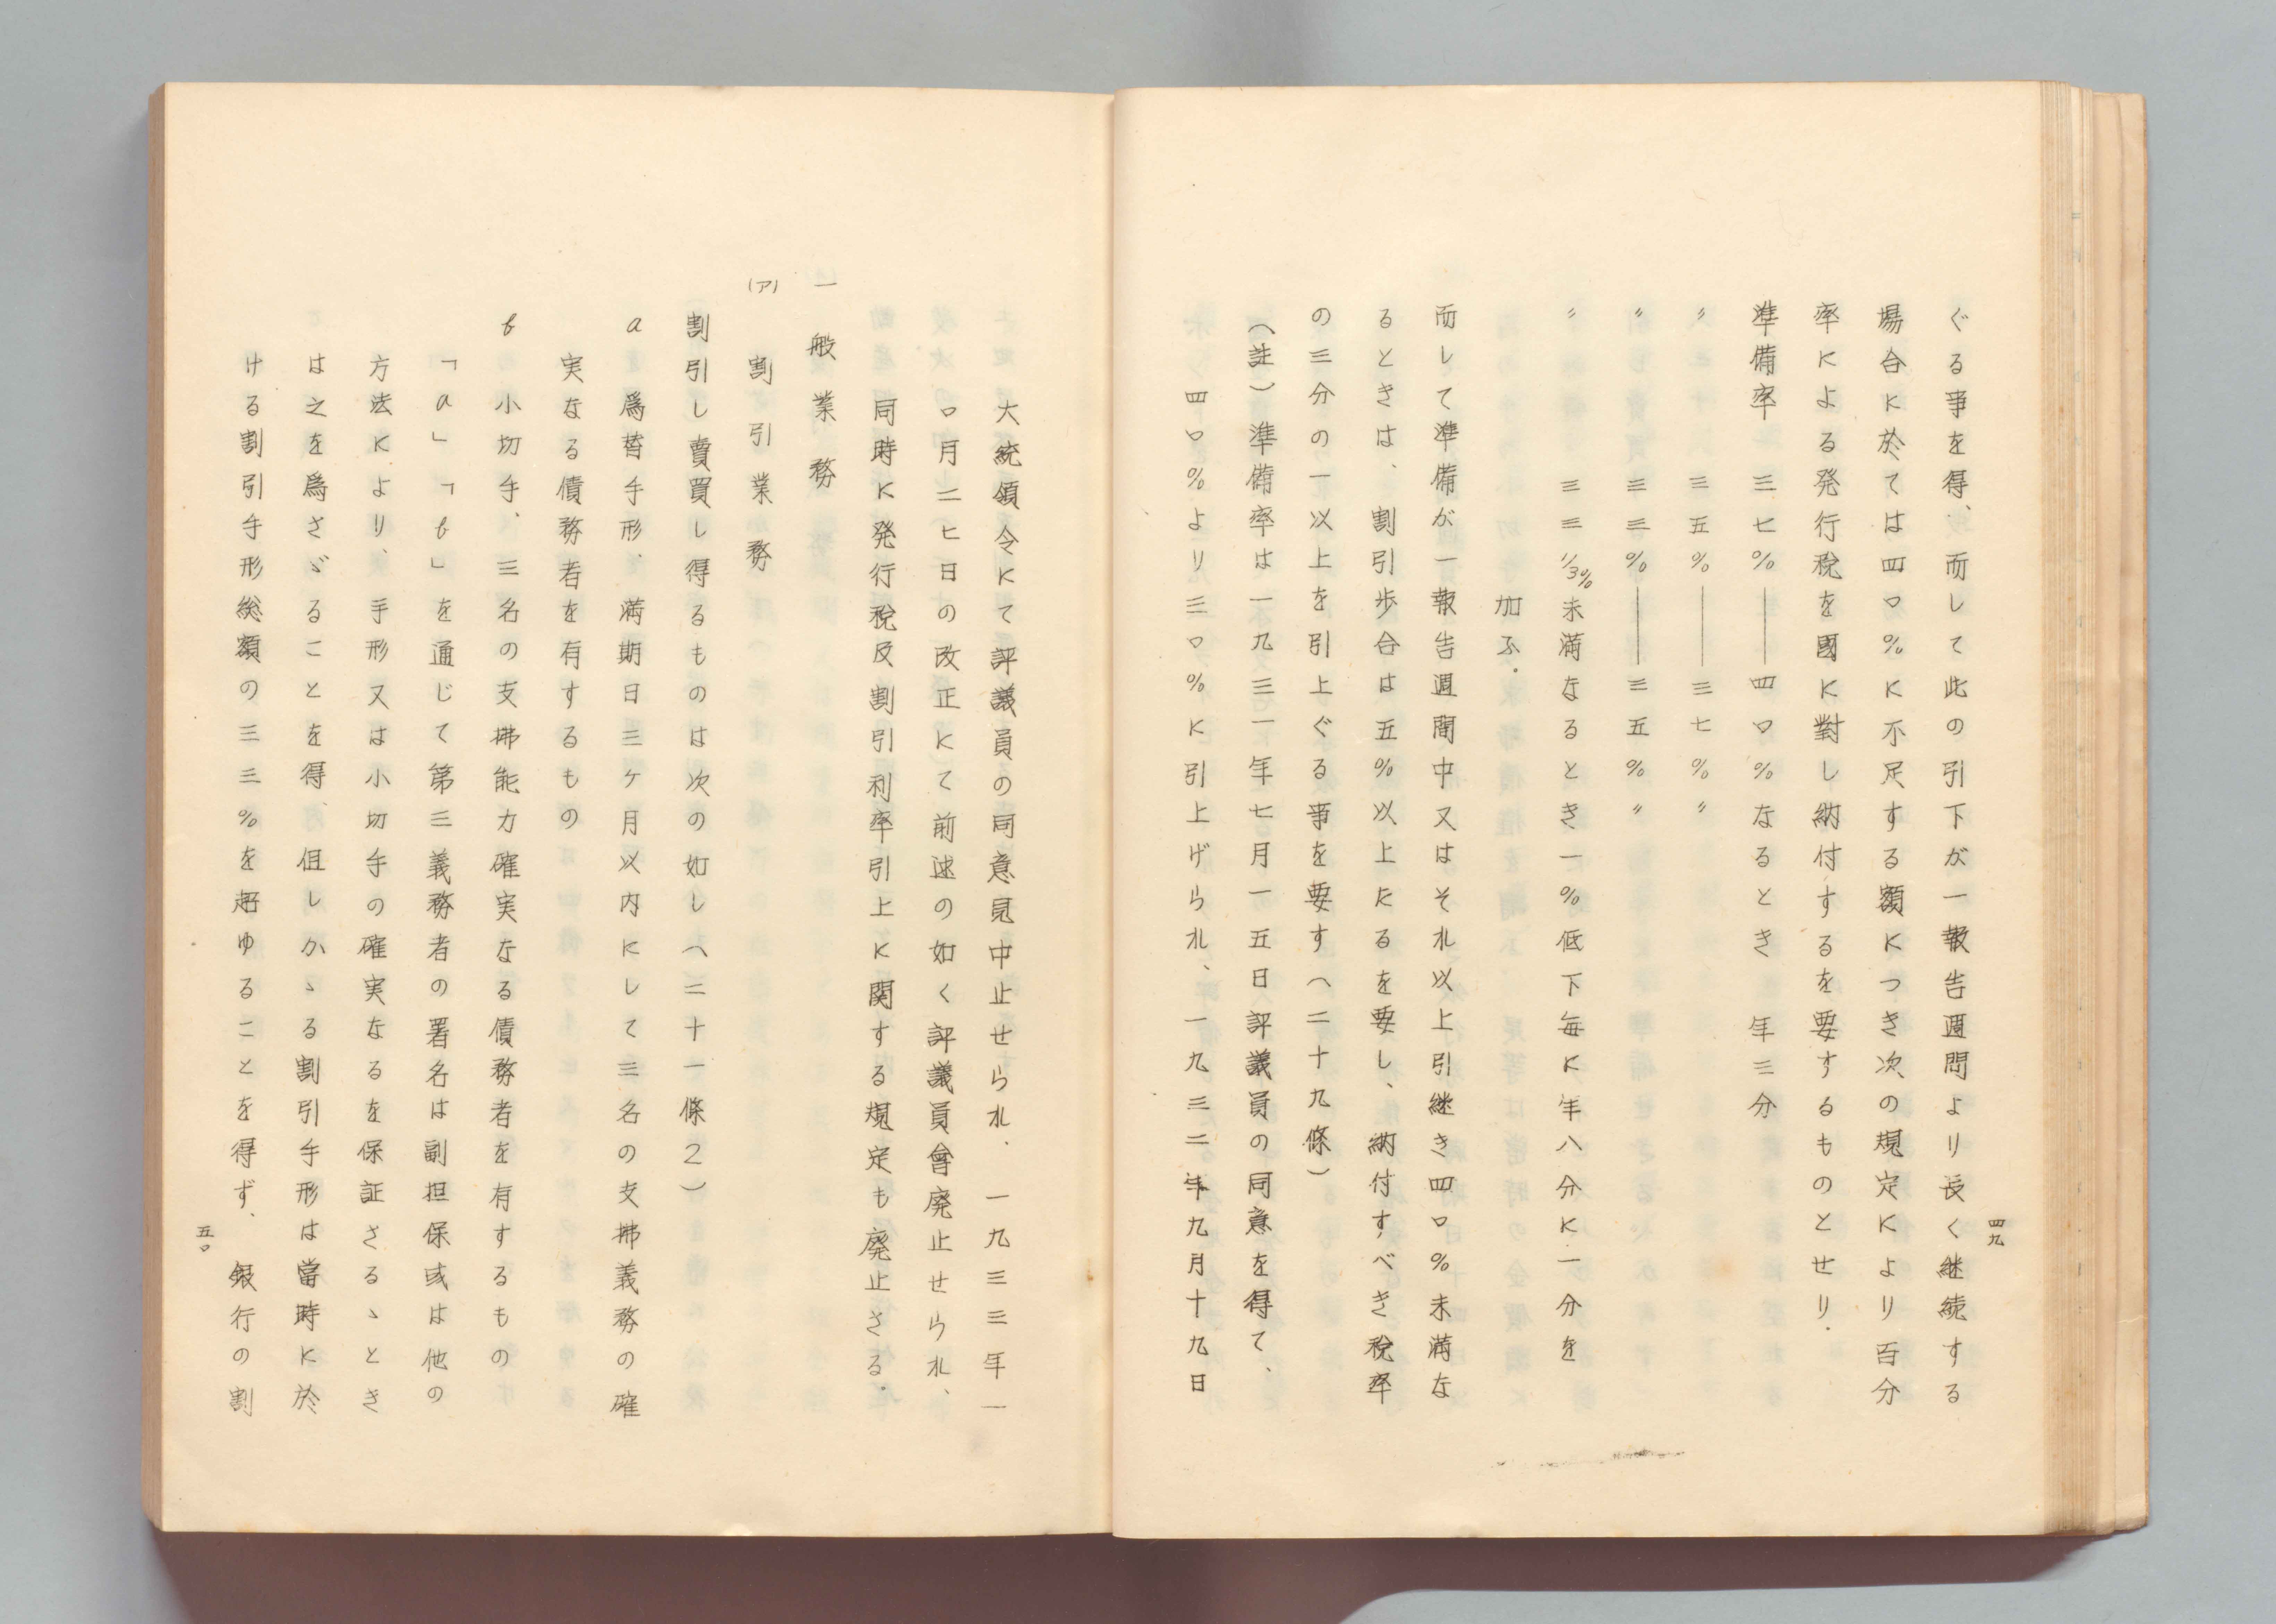 四九
ぐる事を得、而して此の引下が一報告週間より長く継続する
場合に於ては四〇%に不足する額につき次の規定により百分
率による発行税を國に對し納付するを要するものとせり.
準備率 三七%――四〇%なるとき 年三分
〃 三五%――三七% 〃
〃 三三%――三五% 〃
〃 三三1/3%未満なるとき一%低下毎に年八分に一分を
加ふ.
而して準備が一報告週間中又はそれ以上引継き四〇%未満な
るときは、割引歩合は五%以上たるを要し、納付すべき税率
の三分の一以上を引上ぐる事を要す(二十九條)
(註)準備率は一九三一年七月一五日評議員の同意を得て、
四〇%より三〇%に引上げられ、一九三二年九月十九日
大統領令にて評議員の同意見中止せられ、一九三三年一
〇月二七日の改正にて前述の如く評議員會廃止せられ、
同時に発行税及割引利率引上に関する規定も廃止さる.
一般業務
(ア) 割引業務
割引し賣買し得るものは次の如し(二十一條2)
a 爲替手形、満期日三ヶ月以内にして三名の支拂義務の確
実なる債務者を有するもの
b 小切手、三名の支拂能力確実なる債務者を有するもの
「a」「b」を通じて第三義務者の署名は副担保或は他の
方法により、手形又は小切手の確実なるを保証さるゝとき
は之を爲さゞることを得、但しかゝる割引手形は當時に於
ける割引手形総額の三三%を超ゆることを得ず、銀行の割
五〇